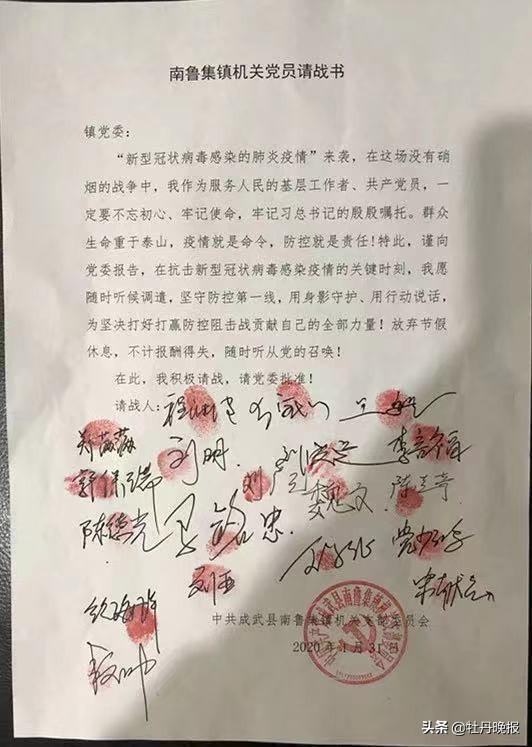 南鲁集镇机关党员请战书
镇党委：
“新型冠状病毒感染的肺炎疫情”来袭，在这场没有硝
烟的战争中，我作为服务人民的基层工作者、共产党员，一
定要不忘初心、牢记使命，牢记习总书记的殷殷嘱托。群众
生命重于泰山，疫情就是命令，防控就是责任！特此，谨向
党委报告，在抗击新型冠状病毒感染疫情的关键时刻，我愿
随时听候调遣，坚守防控第一线，用身影守护、用行动说话，
为坚决打好打赢防控阻击战贡献自己的全部力量！放弃节假
休息，不计报酬得失，随时听从党的召唤！
在此，我积极请战，请党委批准！
请战人：
刘明
陈德光
刘亚
中共成武县南鲁集镇机关支部委员会
2020年1月31日
头条 @牡丹晚报